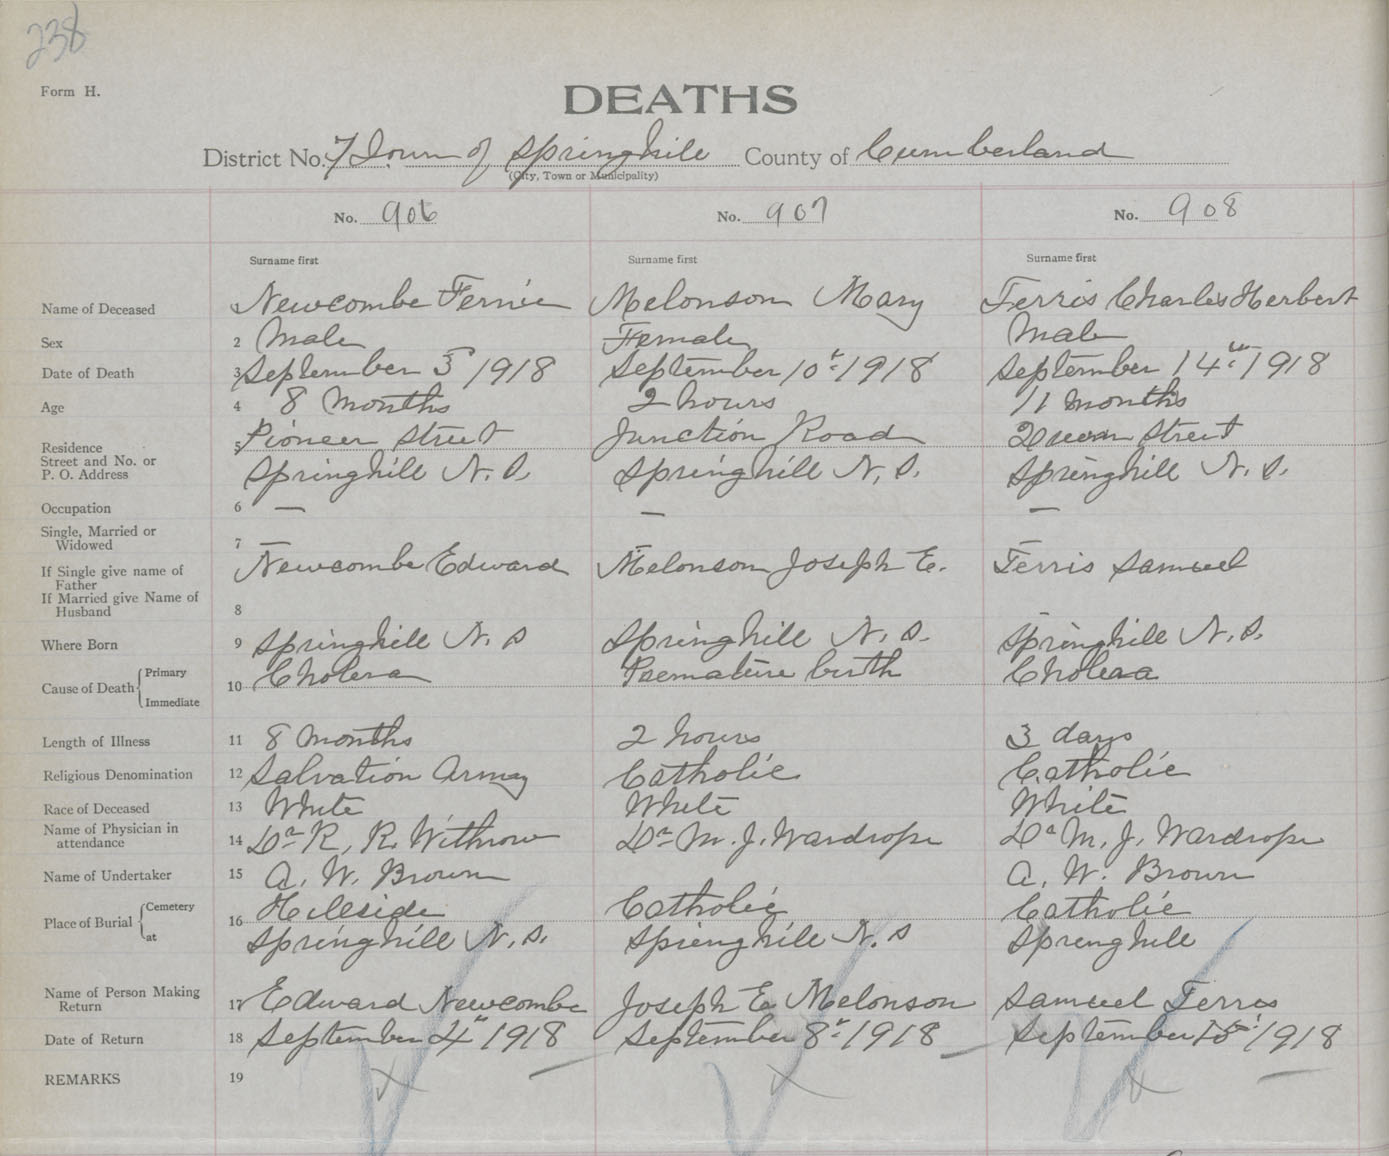 238
Form H.
DEATHS
District No. 7 Town of Springhill County of Cumberland
(City, Town or Municipality)
No. 906 No. 907 No. 908
Surname first Surname first Surname first
Name of Deceased 1 Newcombe Fernie Melonson Mary Ferris Charles Herbert
Sex 2 Male Female Male
Date of Death 3 September 3 1918 September 10th 1918 September 14th 1918
Age 4 8 Months 2 hours 11 months
Residence 5 Pioneer Street Junction Road Street
Street and No. or
P. O. Address Springhill N. S. Springhill N. S. Springhill N. S.
Occupation 6 — — —
Single, Married or
Widowed 7 — — —
If Single give name of
Father Newcombe Edward Melonson Joseph E. Ferris Samuel
If Married give Name of
Husband 8
Where Born 9 Springhill N. S Springhill N. S. Springhill N. S.
Cause of Death Primary Cholera Premature birth Cholera
10
Immediate
Length of Illness 11 8 Months 2 hours 3 days
Religious Denomination 12 Salvation Army Catholic Catholic
Race of Deceased 13 White White White
Name of Physician in
attendance 14 Dr R. R. Withrow Dr M. J. Wardrope Dr M. J. Wardrope
Name of Undertaker 15 A. W. Brown A. W. Brown
Place of Burial Cemetery 16 Hillside Catholic Catholic
at Springhill N. S. Springhill N. S Springhill
Name of Person Making
Return 17 Edward Newcombe Joseph E Melonson Samuel Ferris
Date of Return 18 September 4th 1918 September 8th 1918 September 1918
REMARKS 19